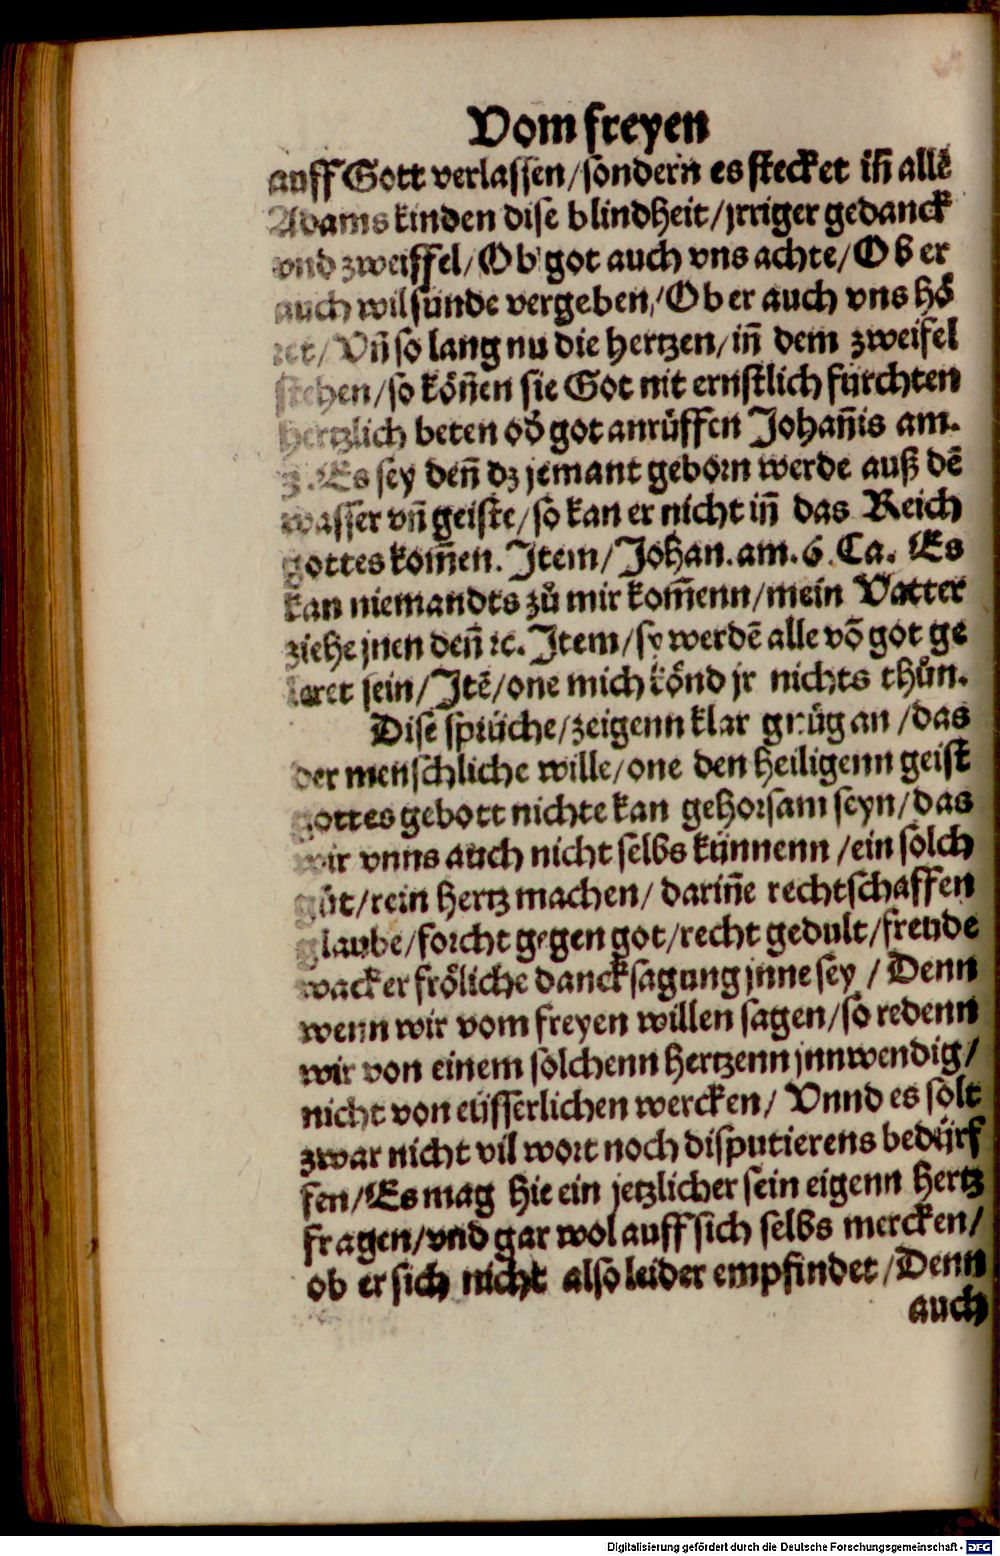 Vom freyen
auff Gott verlassen/sondern es stecket iñ allẽ
Adams kinden dise blindheit/jrriger gedanck
vnd zweiffel/Ob got auch vns achte/Ob er
auch wil sünde vergeben/Ob er auch vns hö
ret/Vñ so lang nu die hertzen/iñ dem zweifel
stehen/so köñen sie Got nit ernstlich fürchten
hertzlich beten oď got anrůffen Johañis am.
3. Es sey deñ dz jemant geborn werde auß dẽ
wasser vñ geiste/so kan er nicht iñ das Reich
gottes kom̃en. Item/Johan. am. 6. Ca. Es
kan niemandts zů mir kom̃enn/mein Vatter
ziehe jnen deñ ꝛc. Item/sy werdẽ alle võ got ge
laret sein/Itẽ/one mich könd jr nichts thůn.
Dise sprüche/zeigenn klar gnůg an/das
der menschliche wille/one den heiligenn geist
gottes gebott nichte kan gehorsam seyn/das
wir vnns auch nicht selbs künnenn/ein solch
gůt/rein hertz machen/dariñe rechtschaffen
glaube/forcht gegen got/recht gedult/freude
wacker fröliche dancksagung jnne sey/Denn
wenn wir vom freyen willen sagen/so redenn
wir von einem solchenn hertzenn jnnwendig/
nicht von eüsserlichen wercken/Vnnd es solt
zwar nicht vil wort noch disputierens bedürf
fen/Es mag hie ein jetzlicher sein eigenn hertz
fragen/vnd gar wol auff sich selbs mercken/
ob er sich nicht also leider empfindet/Denn
auch
Digitalisierung gefördert durch die Deutsche Forschungsgemeinschaft - DFG